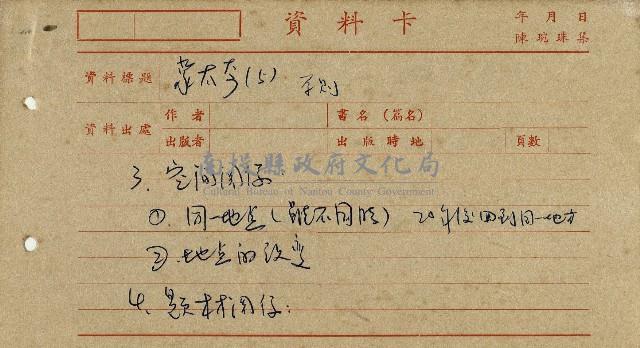 資料卡
年 月 日
陳琬珠集
資料標題 蒙太奇(5) 原則
資料出處
作者
書名(篇名)
出版者
出版時地
頁數
南投縣政府文化局
Cultural Bureau of Nantou County Government
3、空间関係:
①. 同一地点(雖不同時) 20年後回到同一地方
②.地点的改變
4、題材関係: